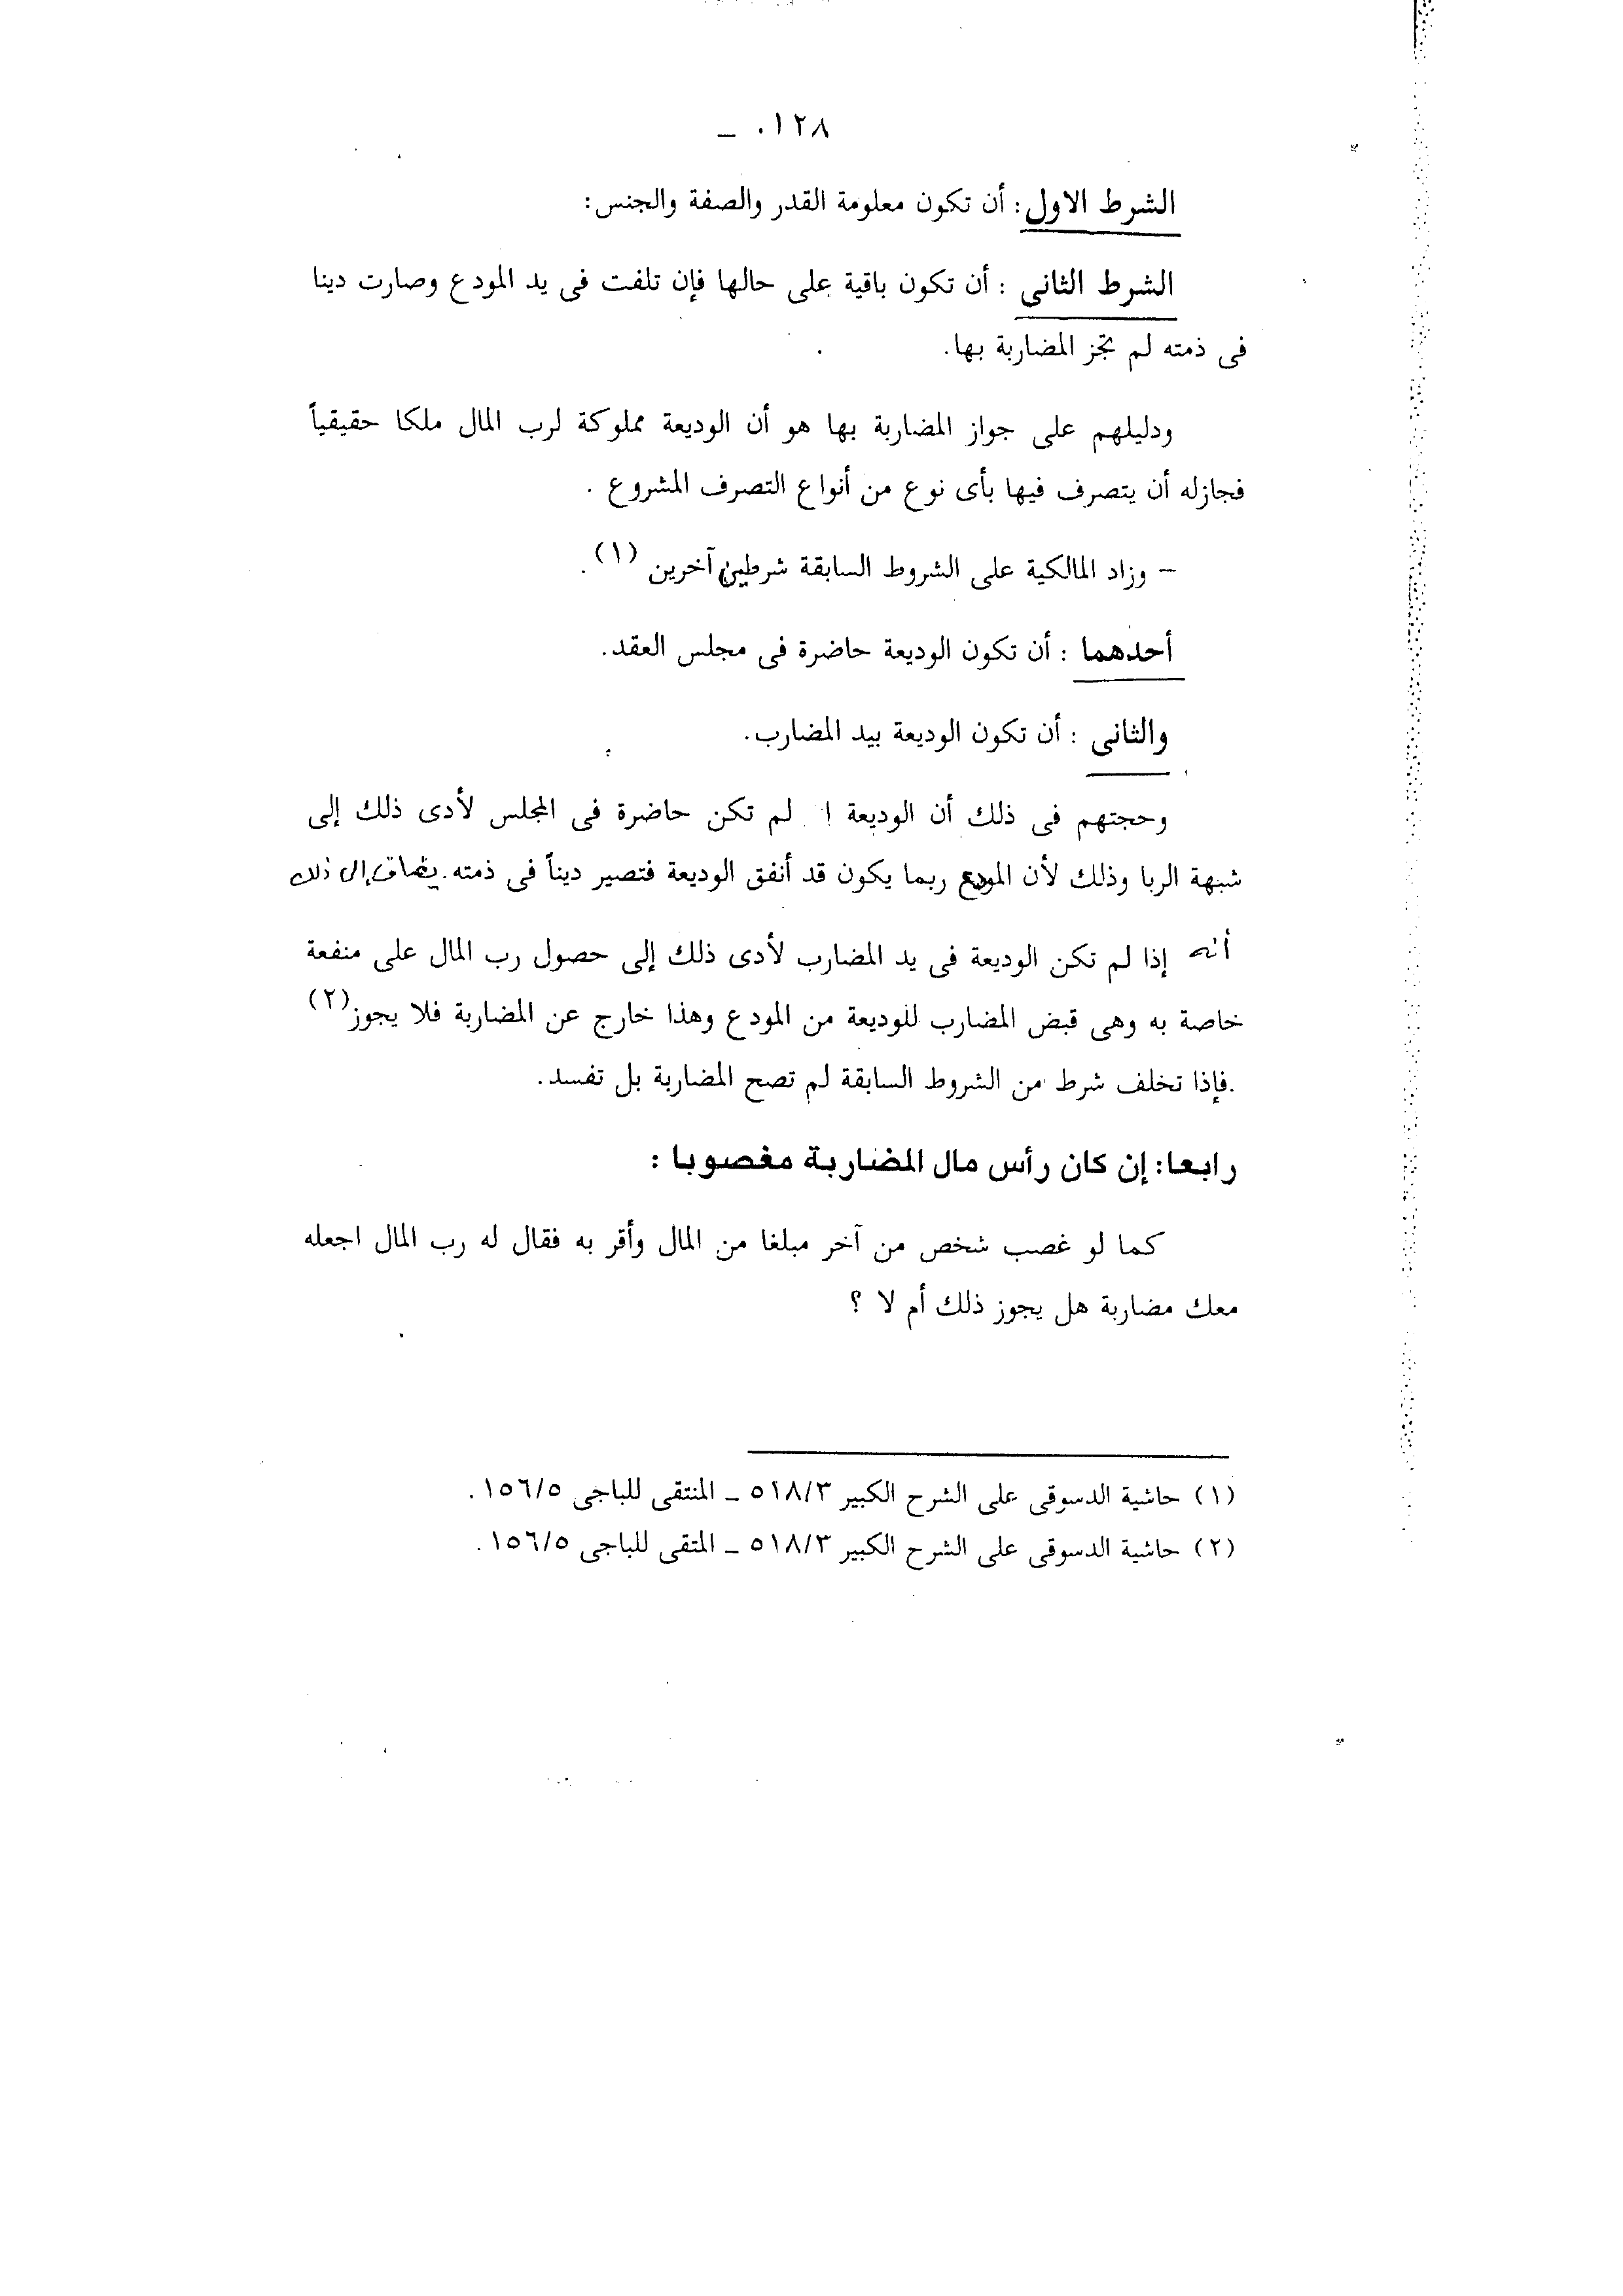 ١٢٨ . ـ
الشرط الاول : أن تكون معلومة القدر والصفة والجنس:
الشرط الثانى : أن تكون باقية على حالها فإن تلفت فى يد المودع وصارت دينا
فى ذمته لم تجز المضاربة بها.
ودليلهم على جواز المضاربة بها هو أن الوديعة مملوكة لرب المال ملكا حقيقياً
فجازله أن يتصرف فيها بأى نوع من أنواع التصرف المشروع .
– وزاد المالكية على الشروط السابقة شرطين آخرين (١) .
أحدهما : أن تكون الوديعة حاضرة فى مجلس العقد.
والثانى : أن تكون الوديعة بيد المضارب.
وحجتهم فى ذلك أن الوديعة لم تكن حاضرة فى المجلس لأدى ذلك إلى
شبهة الربا وذلك لأن المودع ربما يكون قد أنفق الوديعة فتصير ديناً فى ذمته. يضاف إلى ذلك
أنه إذا لم تكن الوديعة فى يد المضارب لأدى ذلك إلى حصول رب المال على منفعة
خاصة به وهى قبض المضارب للوديعة من المودع وهذا خارج عن المضاربة فلا يجوز (٢)
.فإذا تخلف شرط من الشروط السابقة لم تصح المضاربة بل تفسد.
رابعا: إن كان رأس مال المضاربة مغصوبا :
كما لو غصب شخص من آخر مبلغا من المال وأقر به فقال له رب المال اجعله
معك مضاربة هل يجوز ذلك أم لا ؟
(١) حاشية الدسوقى على الشرح الكبير ٥١٨/٣ ـ المنتقى للباجى ١٥٦/٥.
(٢) حاشية الدسوقى على الشرح الكبير ٥١٨/٣ ـ المتقى للباجى ١٥٦/٥.